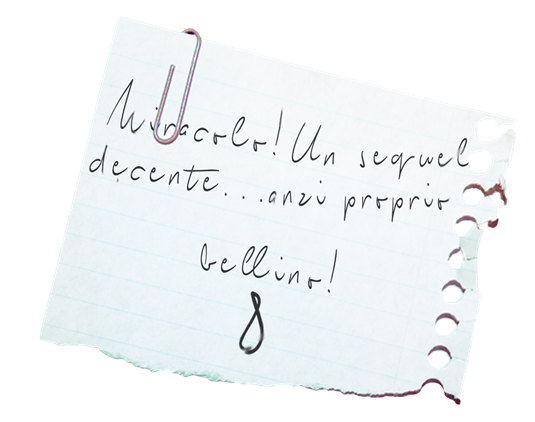 Miracolo! Un sequel
decente...anzi proprio
bellino!
8